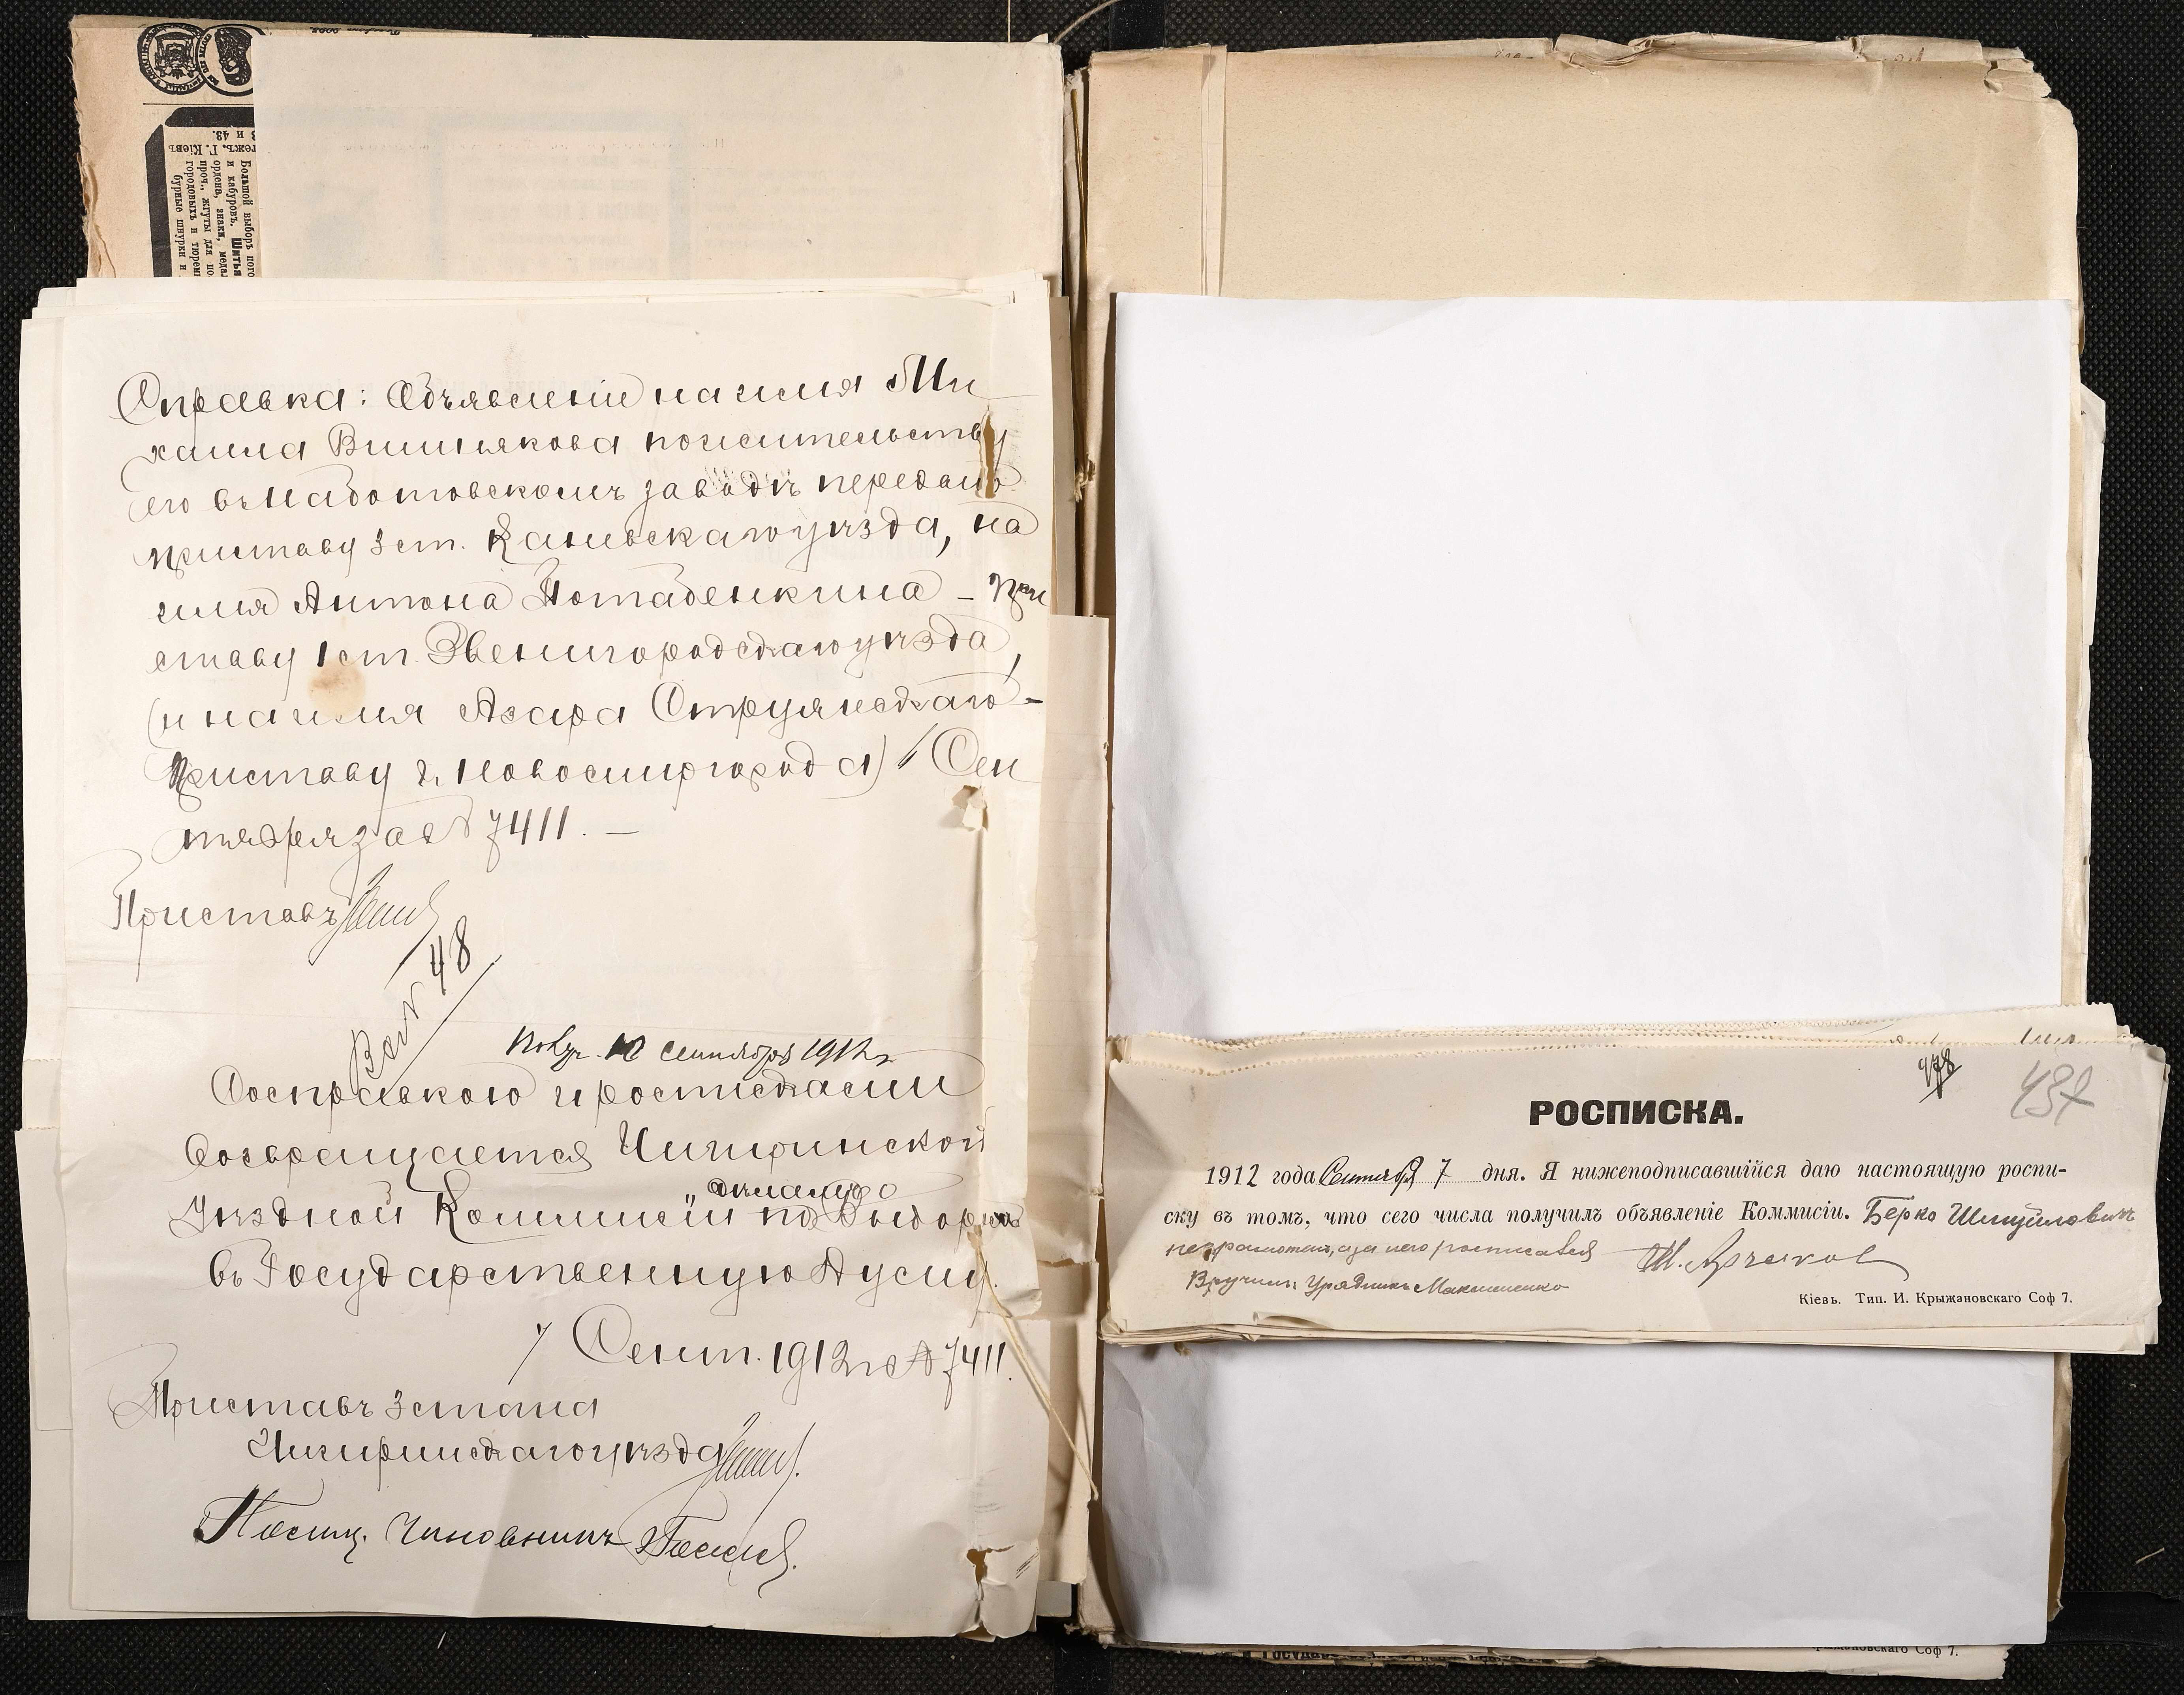 г. Кіевъ
и 43.
Большой выборъ пого
и кабуровъ. Шитья
ордена, знаки, медал
проч., жгуты для по
городовыхъ и тюрем
бурные шнурки и
Справка: Объявленіе на имя Ми
хаила Вишнякова по жительству
его въ Наботовскомъ заводѣ передано
приставу 3 ст. Каневскаго уѣзда, на
имя Антона
ставу 1 ст. Звенигородскаго уѣзда,
(и на имя Азара
Приставу г. Новомиргорода) Сен
тября за № 7411. —
Приставъ
Вх. № 48
Получ. 12 сентября 1912 г.
Со справкою и росписками
возвращается Чигиринской
Уѣздной Коммисіи по дѣламъ о выборахъ
въ Государственную Думу.
7 Сент. 1912 г. № 7411.
Приставъ 3 стана
Чигиринскаго уѣзда
Полиц. Чиновникъ
478
437
РОСПИСКА.
1912 года Сентября 7 дня. Я нижеподписавшійся даю настоящую роспи-
ску въ томъ, что сего числа получилъ объявленіе Коммисіи. Берко Шмуйловичъ
неграмотенъ, а за него росписался Ш.
Вручилъ Урядникъ Максименко
Кіевъ. Тип. И. Крыжановскаго Соф 7.
рыжановскаго Соф 7.